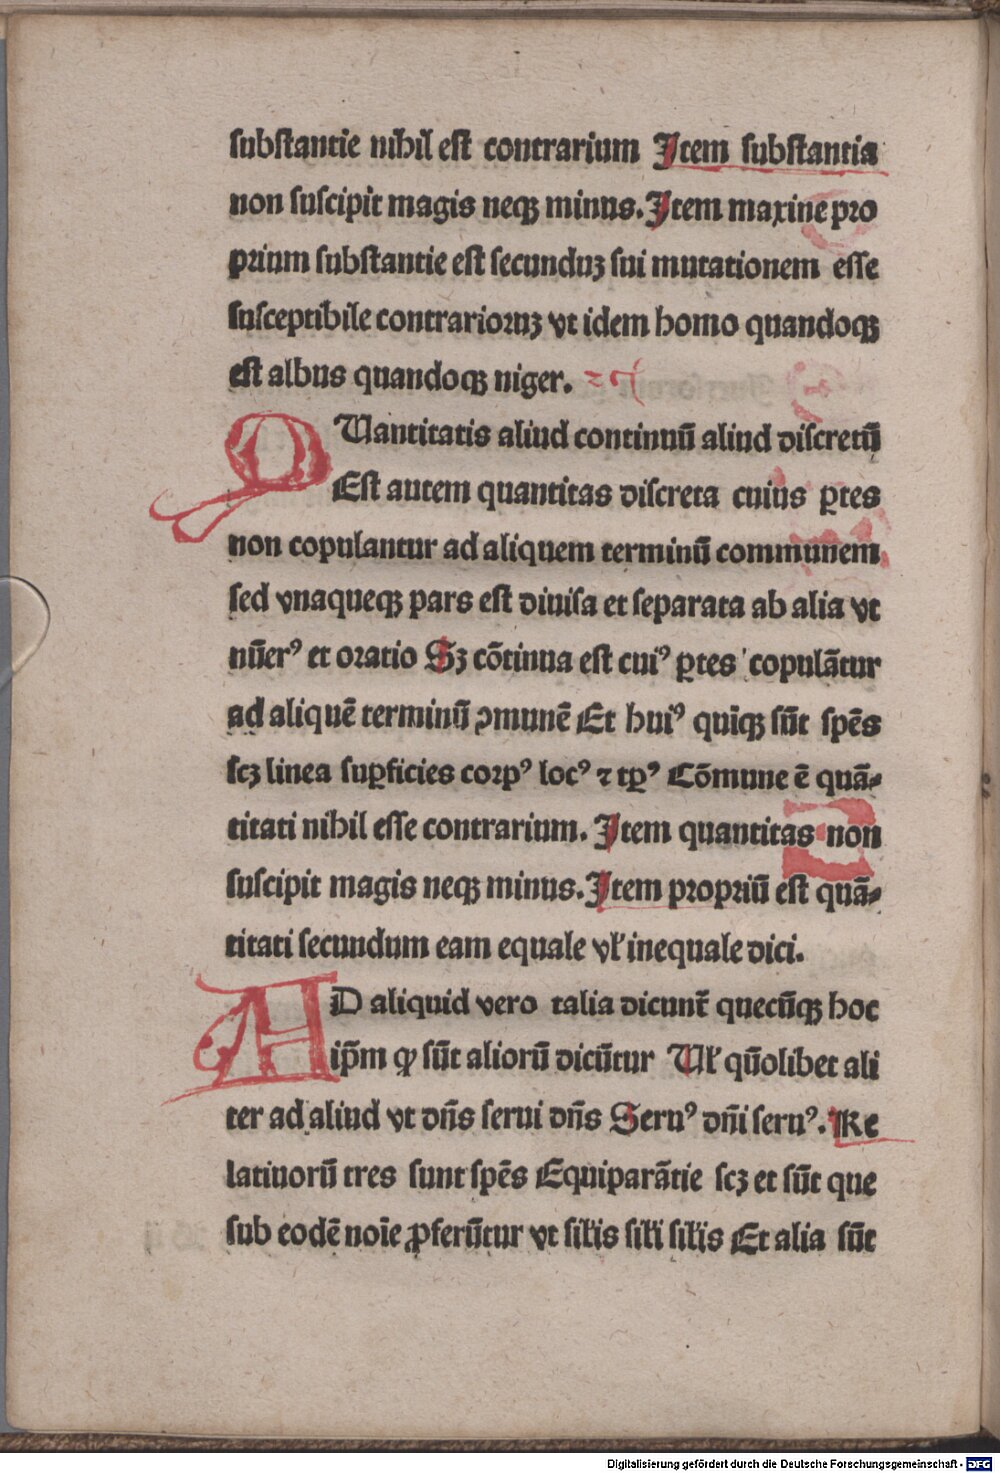 substantie nihil est contrarium Item substantia
non suscipit magis neqꝫ minus. Item maxine pro
prium substantie est secunduꝫ sui mutationem esse
susceptibile contrarioruꝫ vt idem homo quandoqꝫ
est albus quandoqꝫ niger.
QUantitatis aliud continuū aliud discretū
Est autem quantitas discreta cuius ꝑtes
non copulantur ad aliquem terminū communem
sed vnaqueqꝫ pars est diuisa et separata ab alia vt
nūerꝰ et oratio Sꝫ cōtinua est cuiꝰ ꝑtes copulātur
ad aliquē terminū ꝯmunē Et huiꝰ quiqꝫ sūt spēs
scꝫ linea suꝑficies corpꝰ locꝰ ⁊ tꝑꝰ Cōmune ē quā⸗
titati nihil esse contrarium. Item quantitas non
suscipit magis neqꝫ minus. Item propriū est quā⸗
titati secundum eam equale vł inequale dici.
AD aliquid vero talia dicunt̄ quecūqꝫ hoc
ip̄m ꝙ sūt aliorū dicūtur Uł quōlibet ali
ter ad aliud vt dn̄s serui dn̄s Seruꝰ dn̄i seruꝰ. Re
latiuorū tres sunt spēs Equiparātie scꝫ et sūt que
sub eodē noīe ꝓferūtur vt siłis siłi siłis Et alia sūt
Digitalisierung gefördert durch die Deutsche Forschungsgemeinschaft - DFG